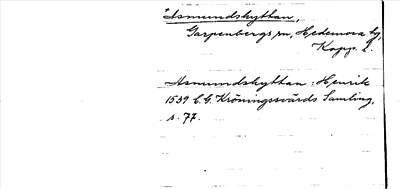 *Asmundshyttan,
Garpenbergs sn, Hedemora tg,
Kopp. l.
Asmundshyttan: Henrik
1539 C. G. Kröningssvärds Samling,
s. 77.